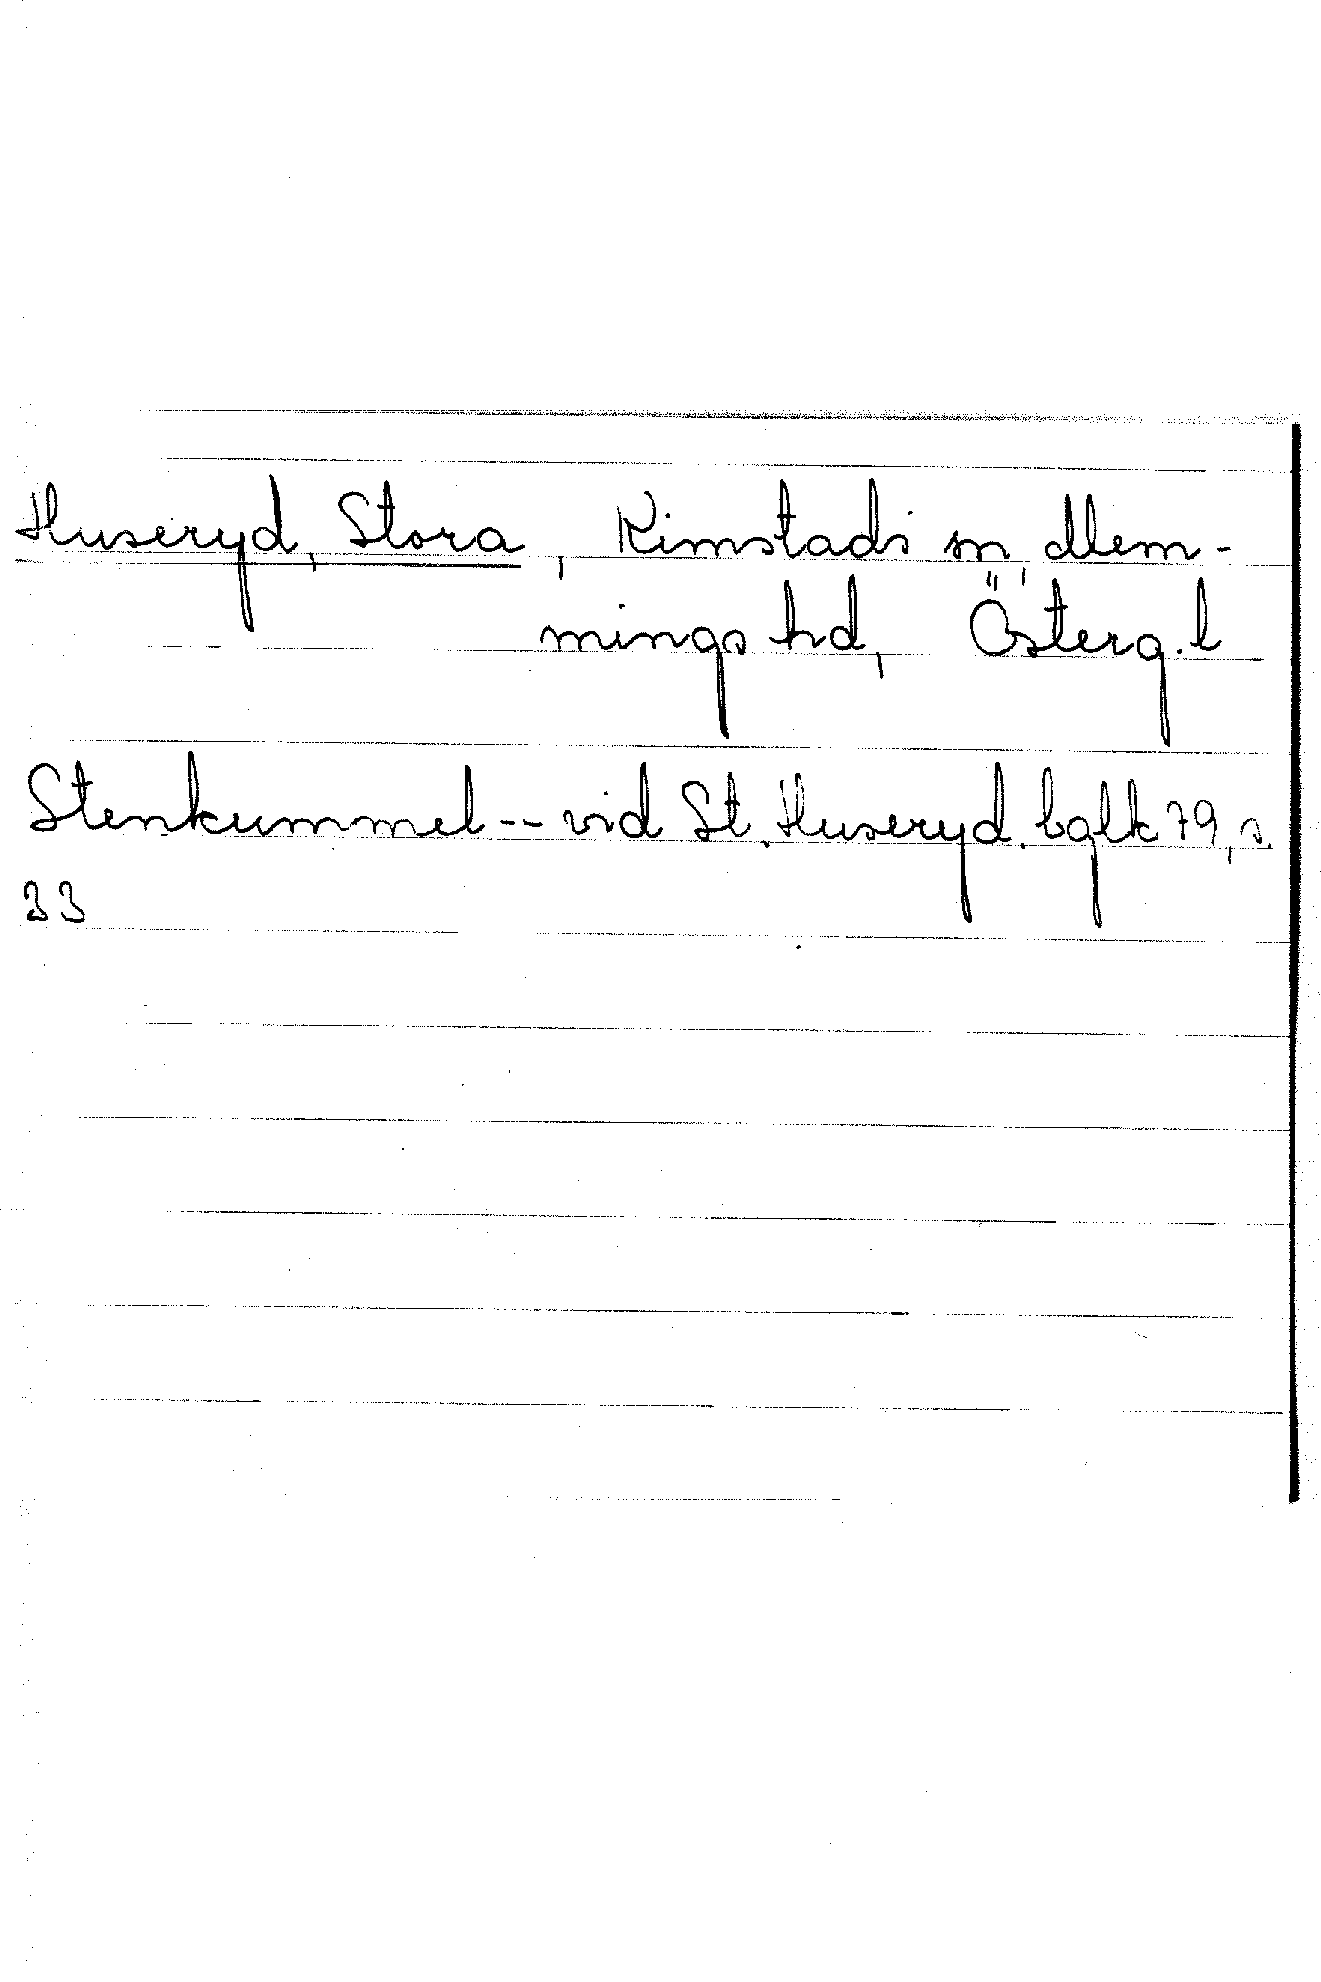 Huseryd, Stora, Kimstads sn, Mem-
mings hd, Österg. l
Stenkummel -- vid St. Huseryd. bglk 79, s.
33